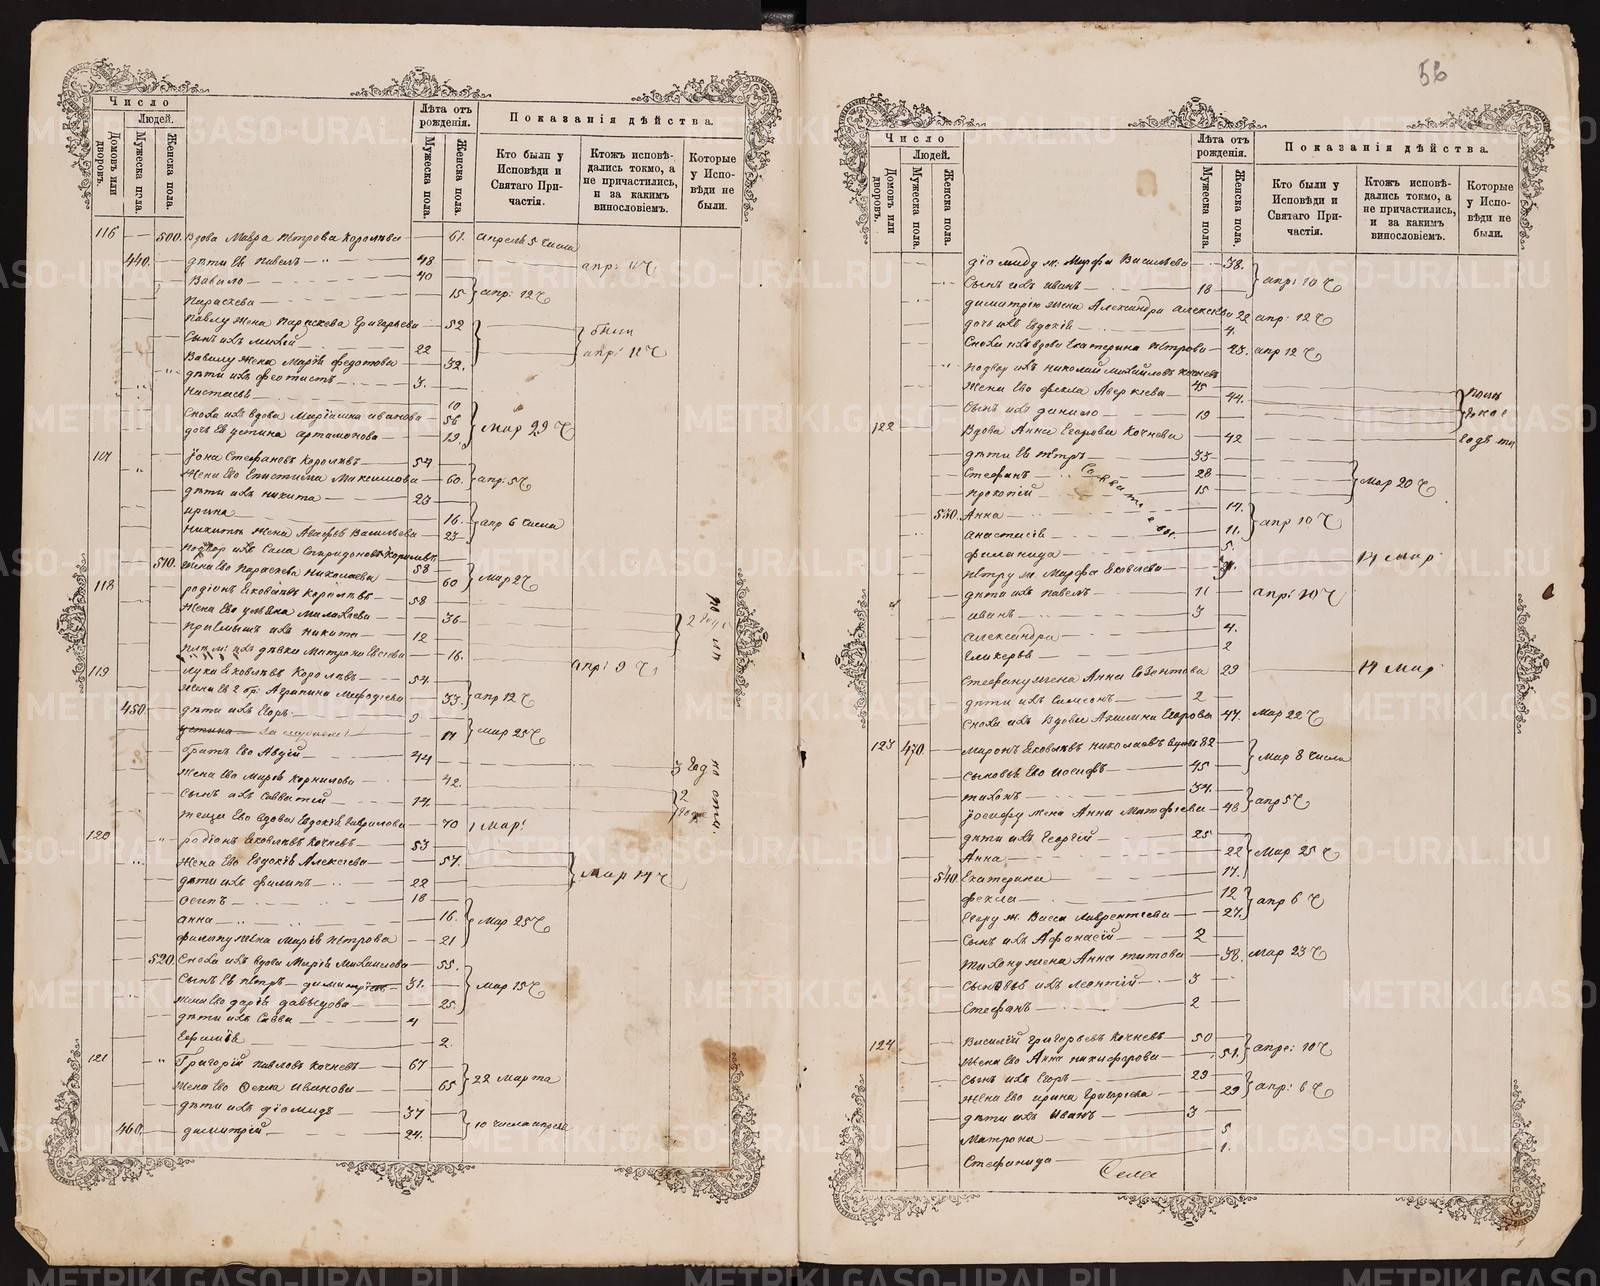 Число
Людей.
Домовъ или дворовъ.
Мужеска пола.
Женска пола.
Лѣта отъ рожденія.
Мужеска пола.
Женска пола.
Показанія дѣйства.
Кто были у Исповѣди и Святаго Причастія.
Ктожъ исповѣдались токмо, а не причастились, и за какимъ винословіемъ.
Которые у Исповѣди не были.
116 500. Вдова Мавра Петрова Королева 61. апреля 5 числа
440. дѣти ея Павелъ 48
Вавило 40 апр: 12 ч
Параскева 15
Павлу жена Параскева Григорьева 52
Сынъ ихъ 22 апр: 11 ч
Вавилу жена Марія Федотова 32.
дѣти ихъ Феотистъ 3.
Настасья 10
Сноха ихъ вдова Маріамна Иванова 56 Мар 29 ч
дочь ея Устина Артамонова 19.
Іона Стефановъ Королевъ 54
Жена его Епистимія Максимова 60. апр: 5 ч
дѣти ихъ Никита 23
Ирина 16. апр 6 числа
Никиты жена Васильева 23
Подвор ихъ Сава Спиридоновъ Королевъ 58
510. Жена его Параскева Николаева 60 Мар 27
118 Родіонъ Яковлевъ Королевъ 58
Жена его Ульяна Михайлова 36
Никита 12
Матрона 16. апр: 9 ч
119 Лука Яковлевъ Королевъ 54
Жена его 2 бр: Агрипина Мефодіева 33. апр 12 ч
450 дѣти ихъ Егоръ 9
Устина 11 Мар 25 ч
братъ его Авдій 44 3 год
Жена его Марія Корнилова 42.
Сынъ ихъ Савватій 14. 2
теща его вдова Евдокія Гаврилова 70 Мар:
120 Родіонъ Яковлевъ Кочневъ 53
Жена его Евдокія Алексіева 57. Мар 14 ч
дѣти ихъ Филипъ 22
Осипъ 18
Анна 16. Мар 25 ч
Филипу жена Марія Петрова 21
520 Сноха ихъ вдова Марія Михайлова 55.
Сынъ ея Димитрій 31. Мар 15 ч
Жена его Дарія Давыдова 25
дѣти ихъ Савва 4
Ефимія 2.
121 Григорій Павловъ Кочневъ 67
Жена его Фекла Иванова 65 22 марта
дѣти ихъ Діомидъ 37
460. Димитрій 24. 10 числа апреля
56
Число
Людей.
Домовъ или дворовъ.
Мужеска пола.
Женска пола.
Лѣта отъ рожденія.
Мужеска пола.
Женска пола.
Показанія дѣйства.
Кто были у Исповѣди и Святаго Причастія.
Ктожъ исповѣдались токмо, а не причастились, и за какимъ винословіемъ.
Которые у Исповѣди не были.
Діомиду ж. Марфа Васильева 38.
Сынъ ихъ Иванъ 18 апр: 10 ч
Димитрію жена Александра Алексіева 22 апр: 12 ч
дочь ихъ Евдокія 4.
Сноха ихъ вдова Екатерина Петрова 43. апр 12 ч
Подвор ихъ Николай Михайловъ Кочневъ 45
Жена его Фекла Аверкіева 44.
Сынъ ихъ Данило 19
122 Вдова Анна Егорова Кочнева 42
дѣти ея Петръ 33
Стефанъ 28 Мар 20 ч
Прокопій 15
530. Анна 14. апр 10 ч
Анастасія 11.
5.
Петру ж. Марфа Яковлева 14 Мар
дѣти ихъ Павелъ 11 апр: 10 ч
Иванъ 3
Александра 4.
Гликерья 2
Стефану жена Анна 23 14 Мар
дѣти ихъ Самсонъ 2
Сноха ихъ вдова Акилина Егорова 47. Мар 22 ч
123 470. Миронъ Яковлевъ Николаевъ вдовъ 82 Мар 8 числа
Сыновья его Іосифъ 45
Тихонъ 34.
Іосифу жена Анна Матфіева 48 апр 5 ч
дѣти ихъ Георгій 25
Анна 22 Мар 25 ч
540. Екатерина 17.
Фекла 12 апр 6 ч
Егору ж. Васса Лаврентіева 27.
Сынъ ихъ Афанасій 2
Тихону жена Анна Титова 38. Мар 23 ч
Сыновья ихъ Леонтій 3
Стефанъ 2
124 Василій Григорьевъ Кочневъ 50
Жена его Анна Никифорова 51. апре: 10 ч
Сынъ ихъ Егоръ 29
Жена его Ирина Григорьева 29 апр: 6 ч
дѣти ихъ Иванъ 3
Матрона 5
Стефанида 1.
Села